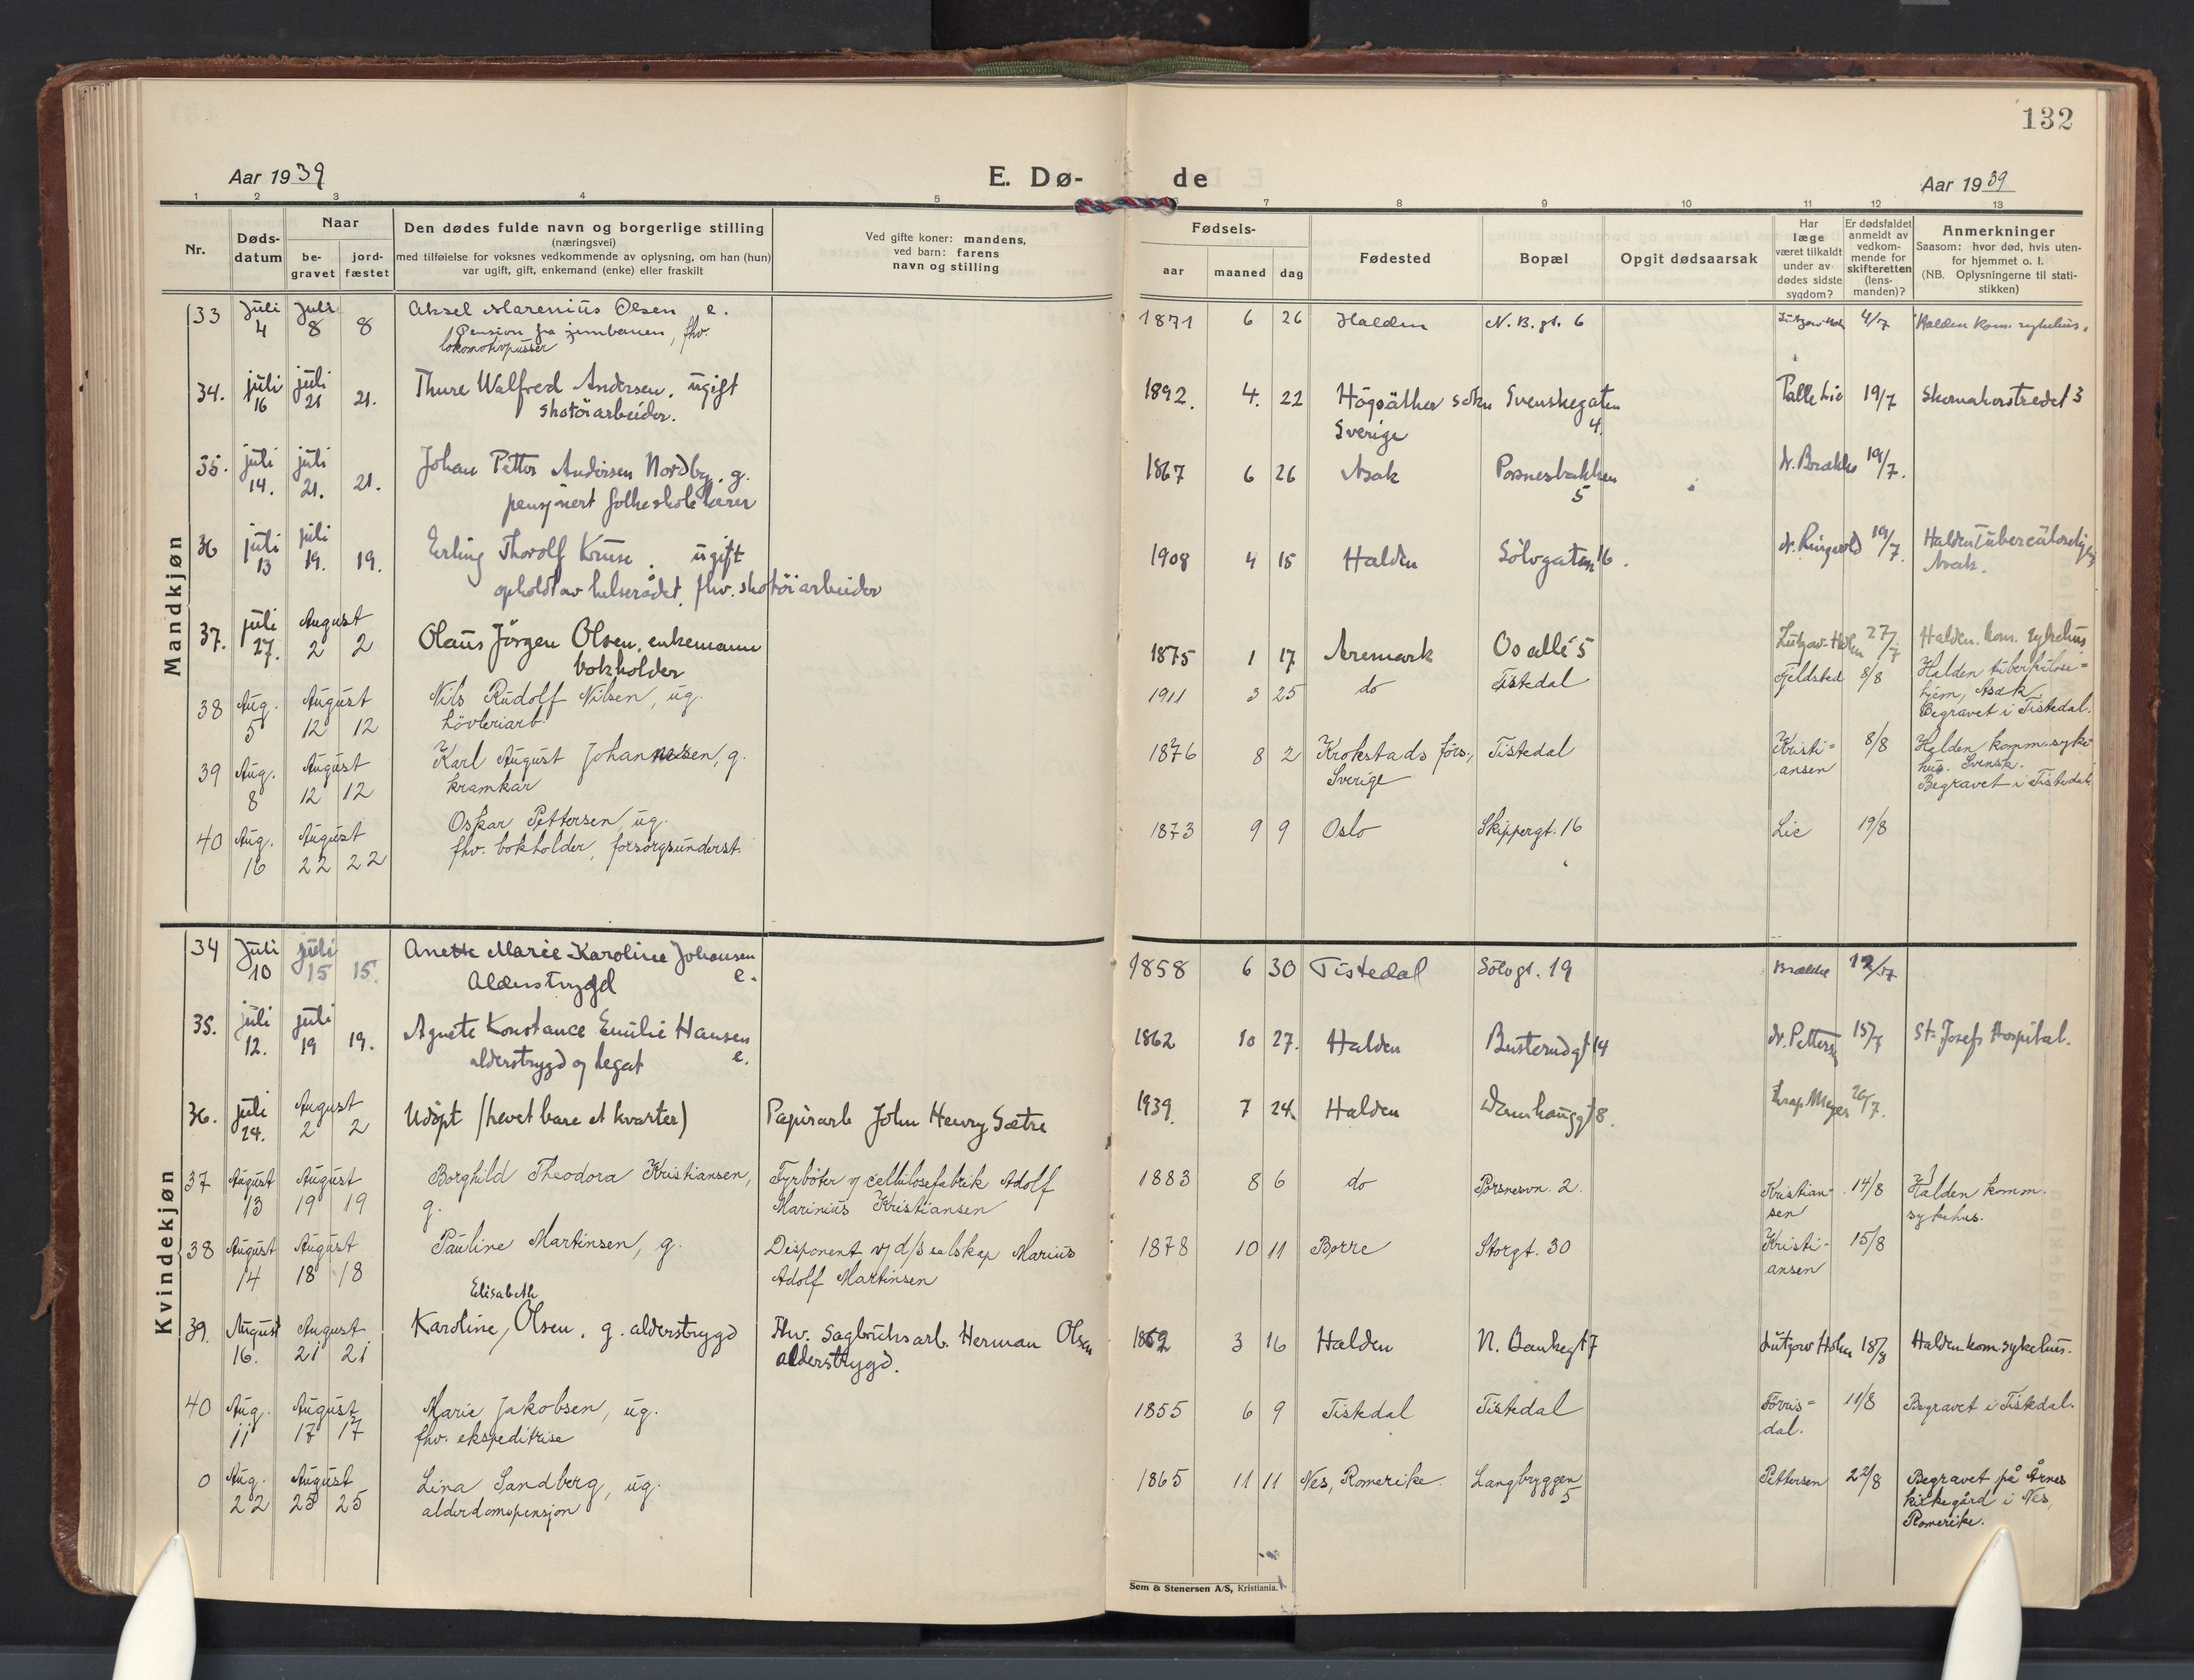 132
Aar 1939
E. Dø-
de
Aar 1939
1 2 3 4 5 7 8 9 10 11 12 13
Nr.
Døds-
datum
Naar
be-
gravet
jord-
fæstet
Den dødes fulde navn og borgerlige stilling
(næringsvei)
med tilføielse for voksnes vedkommende av oplysning, om han (hun)
var ugift, gift, enkemand (enke) eller fraskilt
Ved gifte koner: mandens,
ved barn: farens
navn og stilling
Fødsels-
aar
maaned
dag
Fødested
Bopæl
Opgit dødsaarsak
Har
læge
været tilkaldt
under av-
dødes sidste
sygdom?
Er dødsfaldet
anmeldt av
vedkom-
mende for
skifteretten
(lens-
manden)?
Anmerkninger
Saasom: hvor død, hvis uten-
for hjemmet o. l.
(NB. Oplysningerne til stati-
stikken)
Mandkjøn
33 Juli Juli Aksel Marenius Olsen e.
4 8 8 Pension fra jernbanen, fhv. 1871 6 26 Halden N. B. gt. 6 4/7 Halden kom. sykehus.
lokomotivpusser
34. juli juli Thure Walfred Andersen, ugift
16 21 21. skotöiarbeider. 1892. 4. 22 Högsäther sokn Svenskegaten Palle Lie 19/7 Skomakerstredet 3
Sverige 4.
35. juli juli Johan Petter Andersen Nordby, g.
14. 21. 21. pensjonert folkeskolelærer 1867 6 26 Asak Posnesbakken dr. Brække 19/7.
5
36 juli juli Erling Thorolf Kruse, ugift
13 19. 19. ophold av helserådet, fhv. skotöiarbeider 1908 4 15 Halden Sölvgaten 16. dr. Ringvold 19/7. Halden
Asak.
37. juli August Olaus Jörgen Olsen, enkemann
27. 2 2 bokholder 1875 1 17 Aremark Os allé 5 Lützow-Holm 27/7 Halden kom. sykehus
38 Aug. August Nils Rudolf Nilsen, ug. 1911 3 25 do Tistedal Fjeldstad 8/8 Halden tuberkulose-
5 12 12 hövleriarb. hjem, Asak.
Begravet i Tistedal.
39 Aug. August Karl August Johannesen, g. 1876 8 2 Krokstads förs., Tistedal Kristi- 8/8 Halden komm. syke-
8 12 12 kramkar Sverige ansen hus. Svensk.
Begravet i Tistedal.
40 Aug. August Oskar Pettersen, ug. 1873 9 9 Oslo Skippergt. 16 Lie 19/8
16 22 22 fhv. bokholder, forsorgsunderst.
Kvindekjøn
34 Juli juli Anette Marie Karoline Johansen
10 15 15. Alderstrygd e. 1858 6 30 Tistedal Sölvgt. 19 Brække 12/7
35. juli juli Agnete Konstance Emilie Hansen
12. 19 19. alderstrygd og legat e. 1862 10 27. Halden Busterudgt 14 dr. Pettersen 15/7 St. Josefs Hospital.
36. juli August Udöpt (levet bare et kvarter) Papirarb. John Henry Sætre 1939. 7 24. Halden 8. 26/7.
24. 2 2
37 August August Borghild Theodora Kristiansen, Fyrböter v/ cellulosefabrik Adolf 1883 8 6 do Porsnesvn. 2. Kristian- 14/8 Halden komm.
13 19 19 g. Marinius Kristiansen sen sykehus.
38 August August Pauline Martinsen, g. Disponent v/ d/s selskap Marius 1878 10 11 Borre Storgt. 30 Kristi- 15/8
14 18 18 Adolf Martinsen ansen
Elisabeth
39. August August Karoline, Olsen, g. alderstrygd Fhv. sagbruksarb. Herman Olsen 1862 3 16 Halden N. Bankegt 7 Lützow Holm 18/8 Halden kom. sykehus.
16. 21 21 alderstrygd.
40 Aug. August Marie Jakobsen, ug. 1855 6 9 Tistedal Tistedal 11/8 Begravet i Tistedal.
11 17 17 fhv. ekspeditrise dal.
0 Aug. August Lina Sandberg, ug. 1865 11 11 Nes, Romerike Langbryggen Pettersen 22/8 Begravet på Årnes
22 25 25 alderdomspensjon 5 kirkegård i Nes,
Romerike.
Sem & Stenersen A/S, Kristiania.